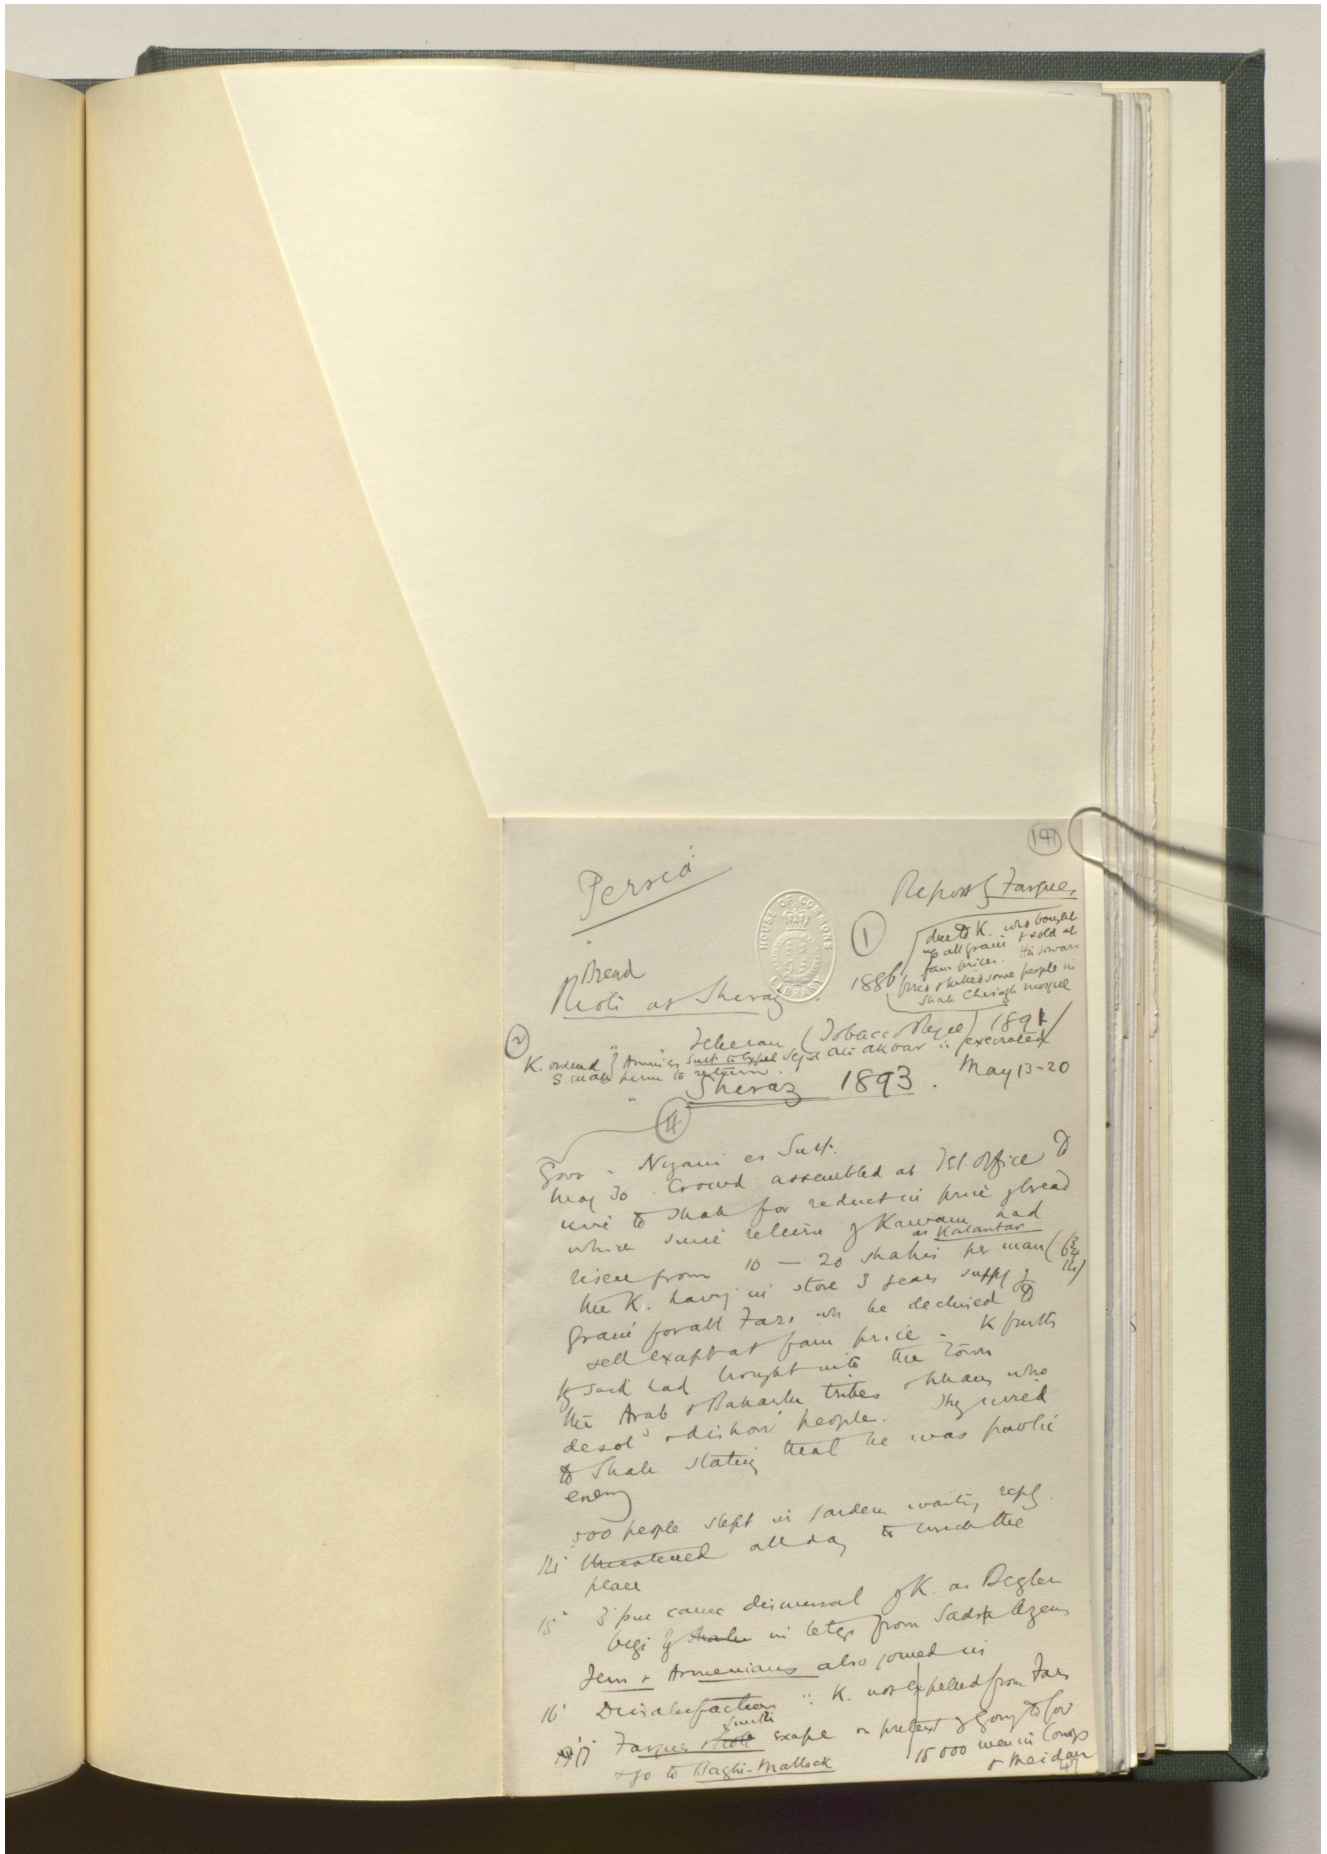 141
Persia
Report of Fargues
HOUSE OF COMMONS
LIBRARY
1
due to K. who bought
up all grain & sold at
fam prices. His sowars
fired & killed some people in
Shah Chiragh mosque
Bread
Riots at Sheraz 1886
" Teheran (Tobacco Regie) 1891
2
K. ordered Seyid Ali Akbar
to return
" Sheraz 1893. May 13-20
Govr - Nizam es Sult.
May 30. Crowd assembled at Tel. office to
wire to Shah for reduct in price of bread
which since return of Kawam had
as Kalantar
risen from 10 - 20 shahis per man (6¾ lb)
the K. having in store 3 years supply of
grain for all Fars wh he declined to
sell except at fam price - K furth
they said had brought into the town
the Arab & Baharlu tribes & khans who
desol & dishon people. They wired
to Shah stating that he was public
enemy
500 people slept in garden waiting reply.
14 Threatened all day to wreck the
place
15 3 pm came dismissal of K. as Begler
begi by Shah in letgr from Sadr Azem
Jews & Armenians also joined in
16 Dissatisfaction ∵ K. not expelled from Fars
17 Fargues & Smith escape on pretext of going to Gov
& go to Baghi-
15 000 men in
& Meidan